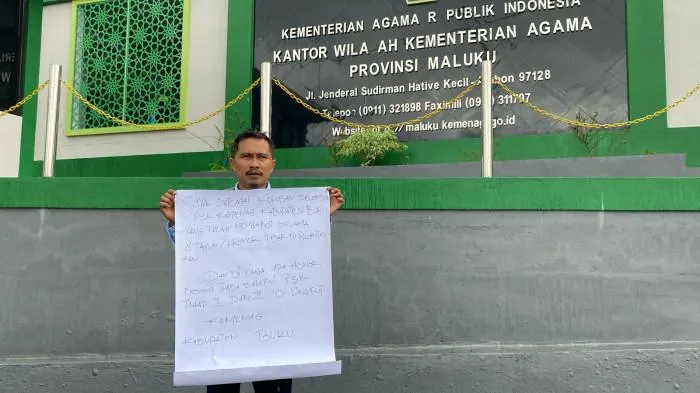 KEMENTERIAN AGAMA R PUBLIK INDONESIA
KANTOR WILA AH KEMENTERIAN AGAMA
PROVINSI MALUKU
Jl. Jenderal Sudirman Hative Kecil - Ambon 97128
Telepon (0911) 321898 Faximili (0911) 311797
Website maluku kemenag.go.id
SAYA SEBAGAI KORBAN SELEKSI
P3K KEMENAG KABUPATEN BURU
YANG TELAH MENGABDI SELAMA
8 TAHUN / HONOR TIDAK DI
KAN
DAN DI DUGA ADA HONOR
BODONG PADA SELEKSI P3K
TAHAP I DAN II DI LINGKUP
KEMENAG
KABUPATEN BURU